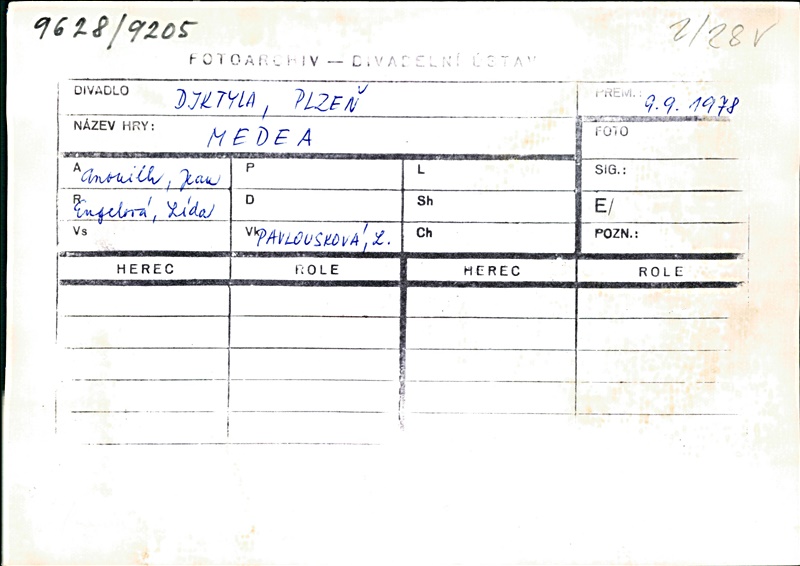 9628/9205
2/28V
FOTOARCHIV — DIVADELNÍ ÚSTAV
DIVADLO DJKTYLA, PLZEŇ
PREM.: 9.9.1978
NÁZEV HRY: MEDEA
FOTO
A Anouilh, Jean
P
L
SIG.:
R Engelová, Lída
D
Sh
E/
Vs
Vk PAVLOUSKOVÁ, L.
Ch
POZN.:
HEREC ROLE HEREC ROLE